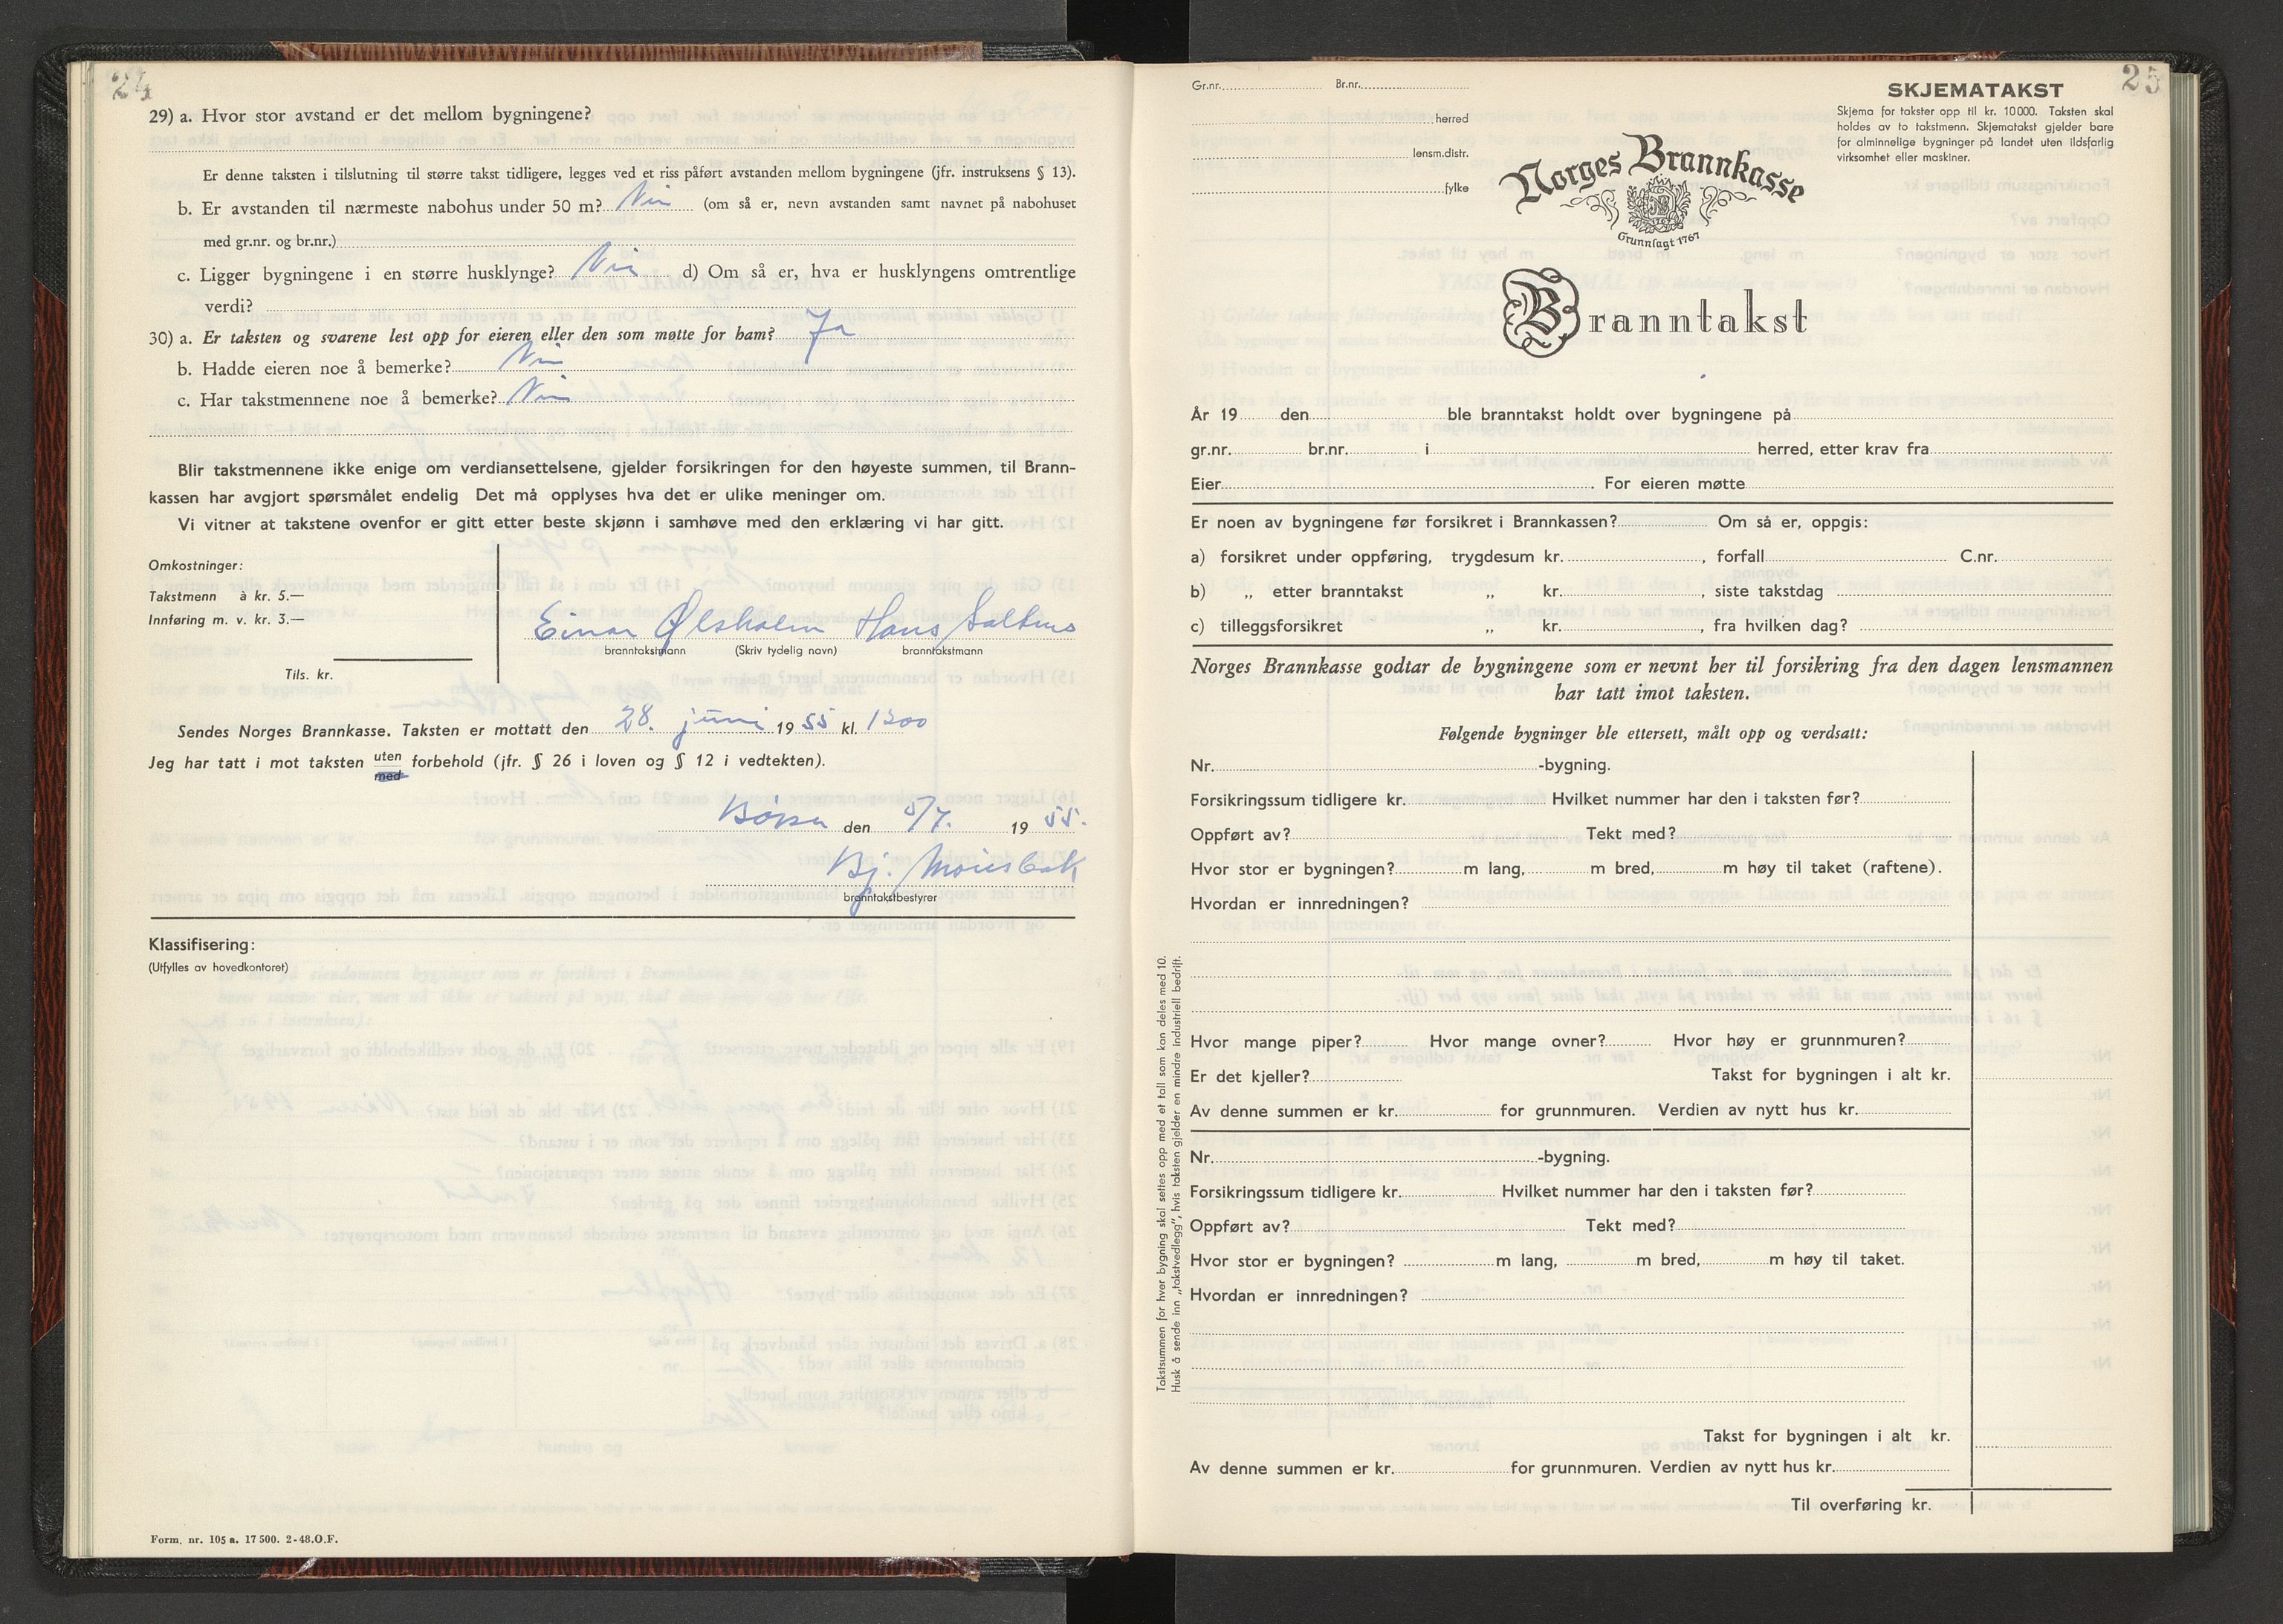 24
29) a. Hvor stor avstand er det mellom bygningene?
Er denne taksten i tilslutning til større takst tidligere, legges ved et riss påført avstanden mellom bygningene (jfr. instruksens § 13).
b. Er avstanden til nærmeste nabohus under 50 m? Nei (om så er, nevn avstanden samt navnet på nabohuset
med gr.nr. og br.nr.)
c. Ligger bygningene i en større husklynge? Nei d) Om så er, hva er husklyngens omtrentlige
verdi?
30) a. Er taksten og svarene lest opp for eieren eller den som møtte for ham? Ja
b. Hadde eieren noe å bemerke? Nei
c. Har takstmennene noe å bemerke? Nei
Blir takstmennene ikke enige om verdiansettelsene, gjelder forsikringen for den høyeste summen, til Brann-
kassen har avgjort spørsmålet endelig Det må opplyses hva det er ulike meninger om.
Vi vitner at takstene ovenfor er gitt etter beste skjønn i samhøve med den erklæring vi har gitt.
Omkostninger:
Takstmenn à kr. 5.—
Innføring m. v. kr. 3.—
Tils. kr.
Einar Ølsholm Hans Saltnes
branntakstmann (Skriv tydelig navn) branntakstmann
Sendes Norges Brannkasse. Taksten er mottatt den 28. juni 1955 kl. 1300
Jeg har tatt i mot taksten uten forbehold (jfr. § 26 i loven og § 12 i vedtekten).
med
Børsa den 5/7. 1955.
Bj.
branntakstbestyrer
Klassifisering:
(Utfylles av hovedkontoret)
Form. nr. 105 a. 17 500. 2-48.O.F.
25
Gr.nr. Br.nr.
herred
lensm.distr.
fylke
SKJEMATAKST
Skjema for takster opp til kr. 10 000. Taksten skal
holdes av to takstmenn. Skjematakst gjelder bare
for alminnelige bygninger på landet uten ildsfarlig
virksomhet eller maskiner.
Norges Brannkasse
Grunnlagt 1767
Branntakst
År 19 den ble branntakst holdt over bygningene på
gr.nr. br.nr. i herred, etter krav fra
Eier . For eieren møtte
Er noen av bygningene før forsikret i Brannkassen? Om så er, oppgis:
a) forsikret under oppføring, trygdesum kr. , forfall C.nr.
b) „ etter branntakst „ kr. , siste takstdag
c) tilleggsforsikret „ kr. , fra hvilken dag?
Norges Brannkasse godtar de bygningene som er nevnt her til forsikring fra den dagen lensmannen
har tatt imot taksten.
Følgende bygninger ble ettersett, målt opp og verdsatt:
Nr. -bygning.
Forsikringssum tidligere kr. Hvilket nummer har den i taksten før?
Oppført av? Tekt med?
Hvor stor er bygningen? m lang, m bred, m høy til taket (raftene).
Hvordan er innredningen?
Hvor mange piper? Hvor mange ovner? Hvor høy er grunnmuren?
Er det kjeller? Takst for bygningen i alt kr.
Av denne summen er kr. for grunnmuren. Verdien av nytt hus kr.
Nr. -bygning.
Forsikringssum tidligere kr. Hvilket nummer har den i taksten før?
Oppført av? Tekt med?
Hvor stor er bygningen? m lang, m bred, m høy til taket.
Hvordan er innredningen?
Takst for bygningen i alt kr.
Av denne summen er kr. for grunnmuren. Verdien av nytt hus kr.
Til overføring kr.
Takstsummen for hver bygning skal settes opp med et tall som kan deles med 10.
Husk å sende inn „takstvedlegg", hvis taksten gjelder en mindre industriell bedrift.